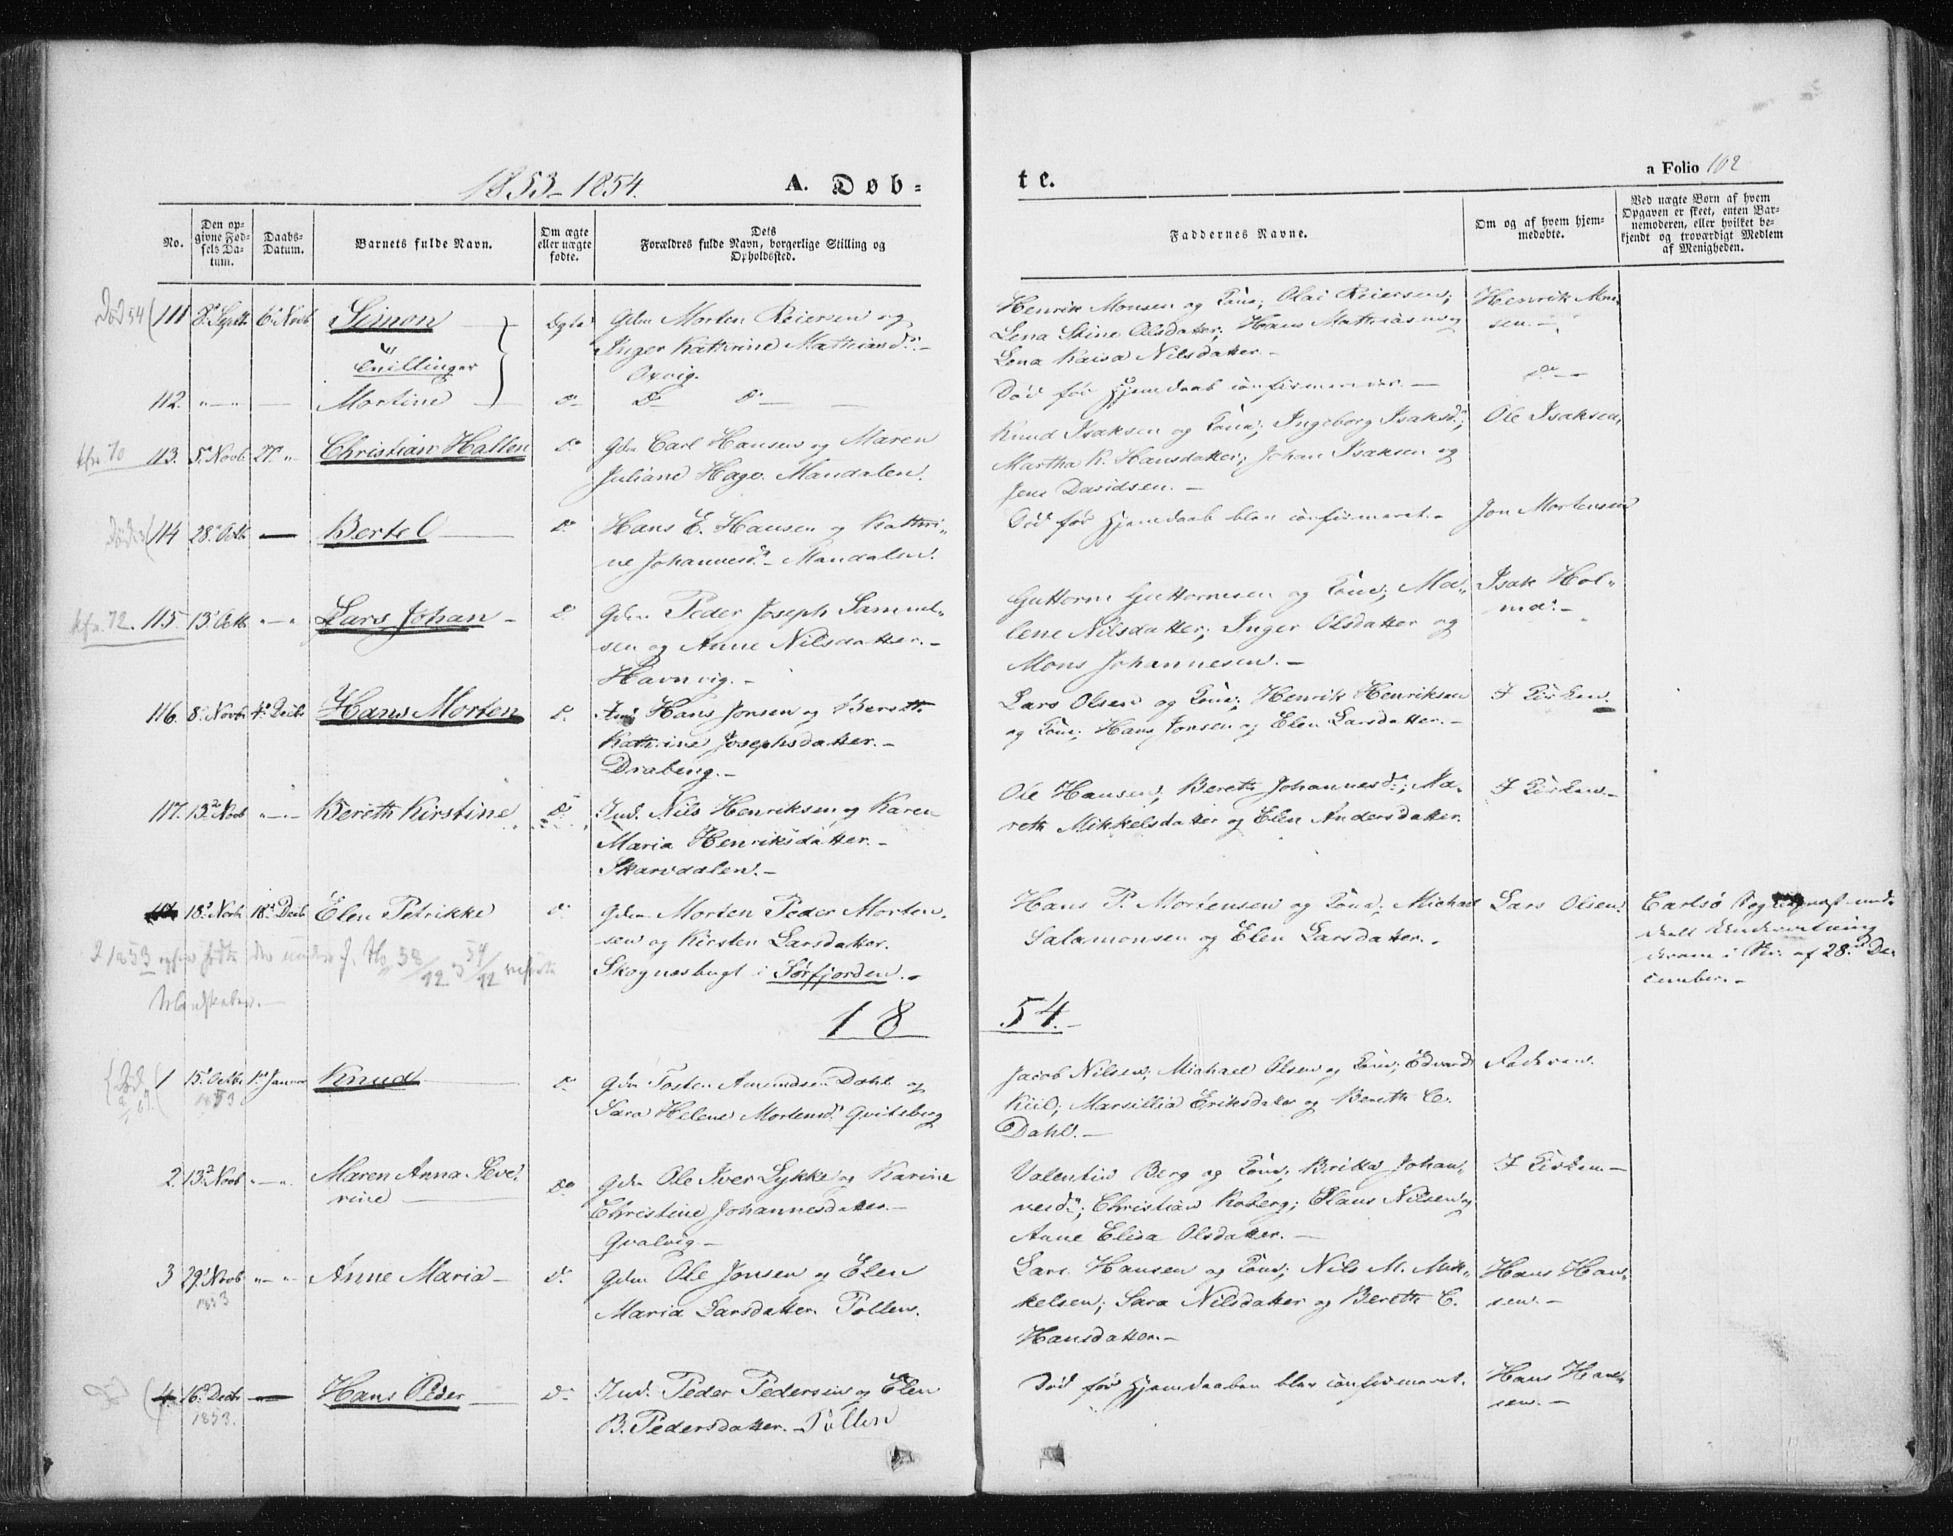 1853-1854.
A. Døb-
te.
a Folio 102
No.
Den op-
givne Fød-
sels Da-
tum.
Daabs-
Datum.
Barnets fulde Navn.
Om ægte
eller uægte
fødte.
Dets
Forældres fulde Navn, borgerlige Stilling og
Opholdssted.
Faddernes Navne.
Om og af hvem hjem-
medøbte.
Ved uægte Børn af hvem
Opgaven er skeet, enten Bar-
nemoderen, eller hvilket be-
kjendt og troværdigt Medlem
af Menigheden.
Død 54 (111 8de Septb 6te Novb Simon
Tvillinger
ægte
Gdm Morten Reiersen og
Inger Kathrine Mathiasd.
Oxvig.
Henrik Monsen og Kone; Olai Reiersen;
Lena Stine Olsdatter; Hans Mathias og
Lena Kaisa Nilsdatter.
Henrik Mon-
sen.
112. Martine Do Do Do
Død før Hjemdaab confirmeres.
Do
113. 5 Novb 27 " Christian Hallen Do
Gdm Carl Hansen og Maren
Juliane Hage. Mandalen.
Knud Isaksen og Kone; Ingeborg Isaksd;
Martha K. Hansdatter; Johan Isaksen og
Jens Davidsen.
Ole Isaksen.
114 28de Octb Bertel Do
Hans E. Hansen og Kathri-
ne Johannesd. Mandalen.
Død før Hjemdaab blev confirmeret.
Jon Mortensen
kfr. 72. 115. 13 Octb Lars Johan D.
Gdm Peder Joseph Samuel-
sen og Anne Nilsdatter.
Havnvig.
Guttorm Guttormsen og Kone; Ma-
lene Nilsdatter; Inger Olsdatter og
Mons Johannesen.
Isak Hol-
ma.
116. 8 Novb 4de Decb Hans Morten D.
Hans Jonsen og Bereth
Kathrine Josephsdatter.
Drabeng.
Lars Olsen og Kone; Henrik Henriksen
og Kone; Hans Jonsen og Elen Larsdatter.
I Kirken.
117. 13de Novb Bereth Kirstine D.
Ind. Nils Henriksen og Karen
Maria Henriksdatter.
Skarvdalen.
Ole Hansen; Bereth Johannesd.; Ma-
reth Mikkelsdatter og Elen Andersdatter.
I Kirken.
18de Novb 18de Decb Elen Petrikke D.
Gdm Morten Peder Morten-
sen og Kirsten Larsdatter.
Skognesbugt i Sørfjorden.
Hans P. Mortensen og Kone; Michael
Salamonsen og Elen Larsdatter.
Lars Olsen.
Carlsø
derom i Br. af 28de De-
cember.
1854.
1 15de Octb 1ste Januar Knud D.
1853
Gdm Tosten Amundsen Dahl og
Sara Helene Mortensd. Qviteberg
Jacob Nilsen; Michael Olsen og Kone; Edvard
Kiil; Marsillia Eriksdatter og Bereth C.
Dahl.
Faderen.
2. 13de Novb Maren Anna Seve-
rine Do
Gdm Ole Iver Lykke og Karine
Christine Johannesdatter.
Qvalvig
Valentin Berg og Kone; Britta Johan-
nesd; Christian Koberg; Claus Nilsen og
Anne Elisa Olsdatter.
I Kirken
3 29 Novb Anne Maria D.
1853
Gdm Ole Jonsen og Elen
Maria Larsdatter. Pollen.
Lars Hansen og Kone; Nils M. Mik-
kelsen; Sara Nilsdatter og Bereth C.
Hansdatter.
Hans Han-
sen.
4 16de Decb Hans Peder D.
1853.
Ind. Peder Pedersen og Elen
B. Pedersdatter. Pollen
Død før Hjemdaaben blev confirmeret.
Hans Han-
sen.